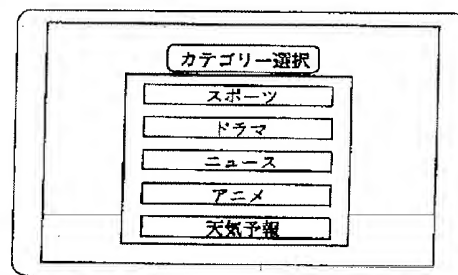 カテゴリー選択
スポーツ
ドラマ
ニュース
アニメ
天気予報